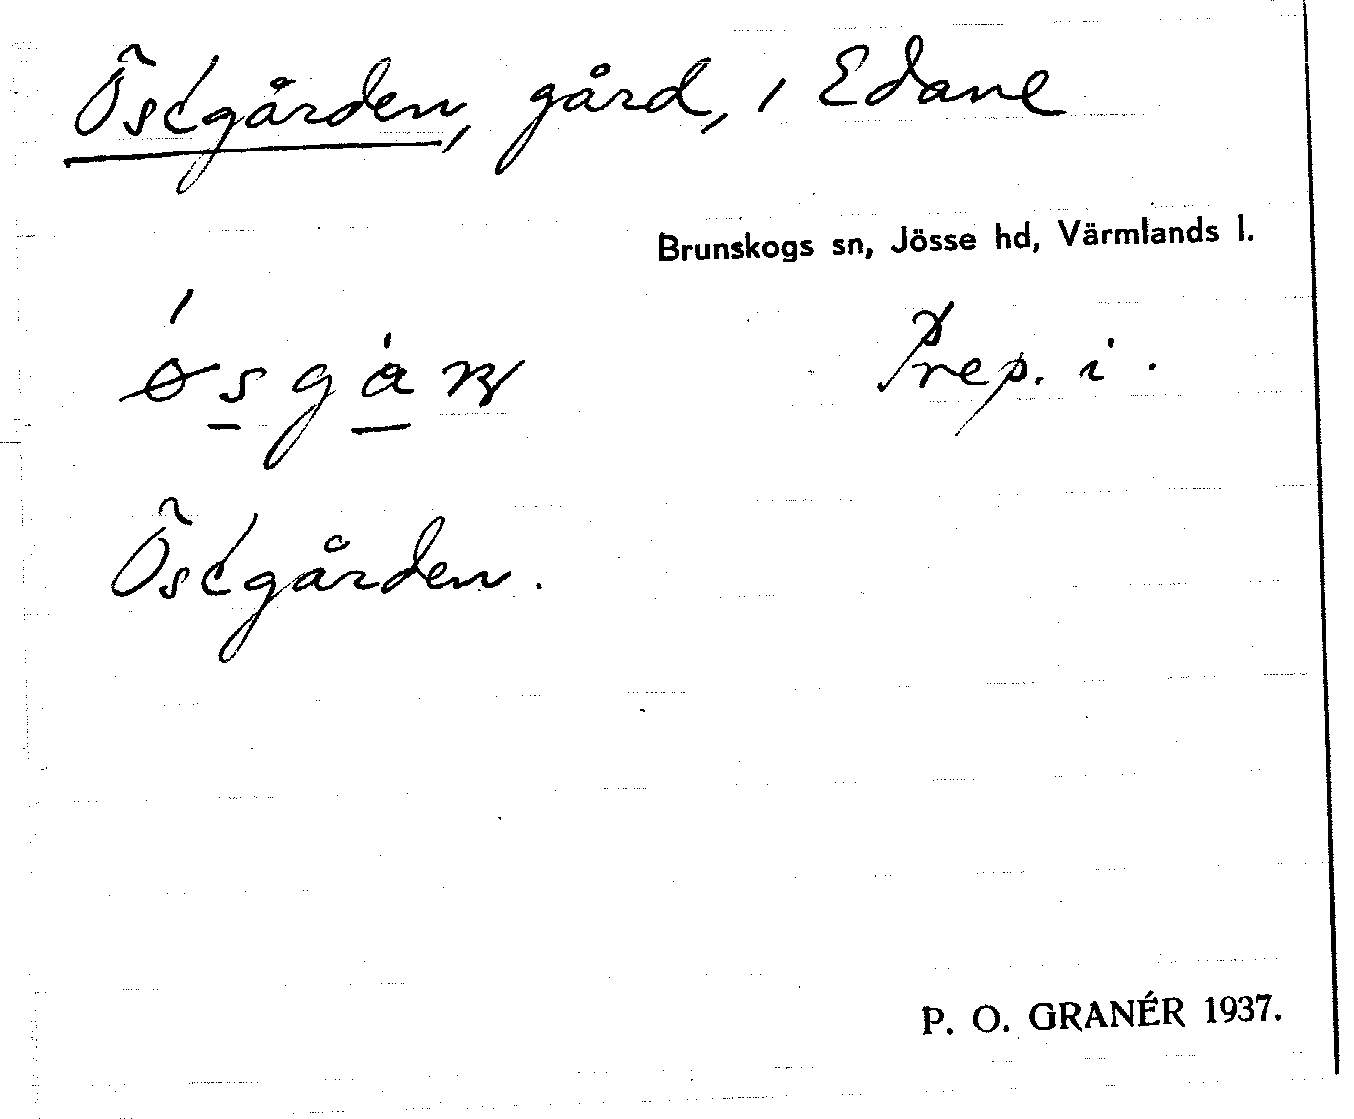 Östgården, gård, i Edane
Brunskogs sn, Jösse hd, Värmlands l.
Prep. i.
Östgården.
P. O. GRANÉR 1937.